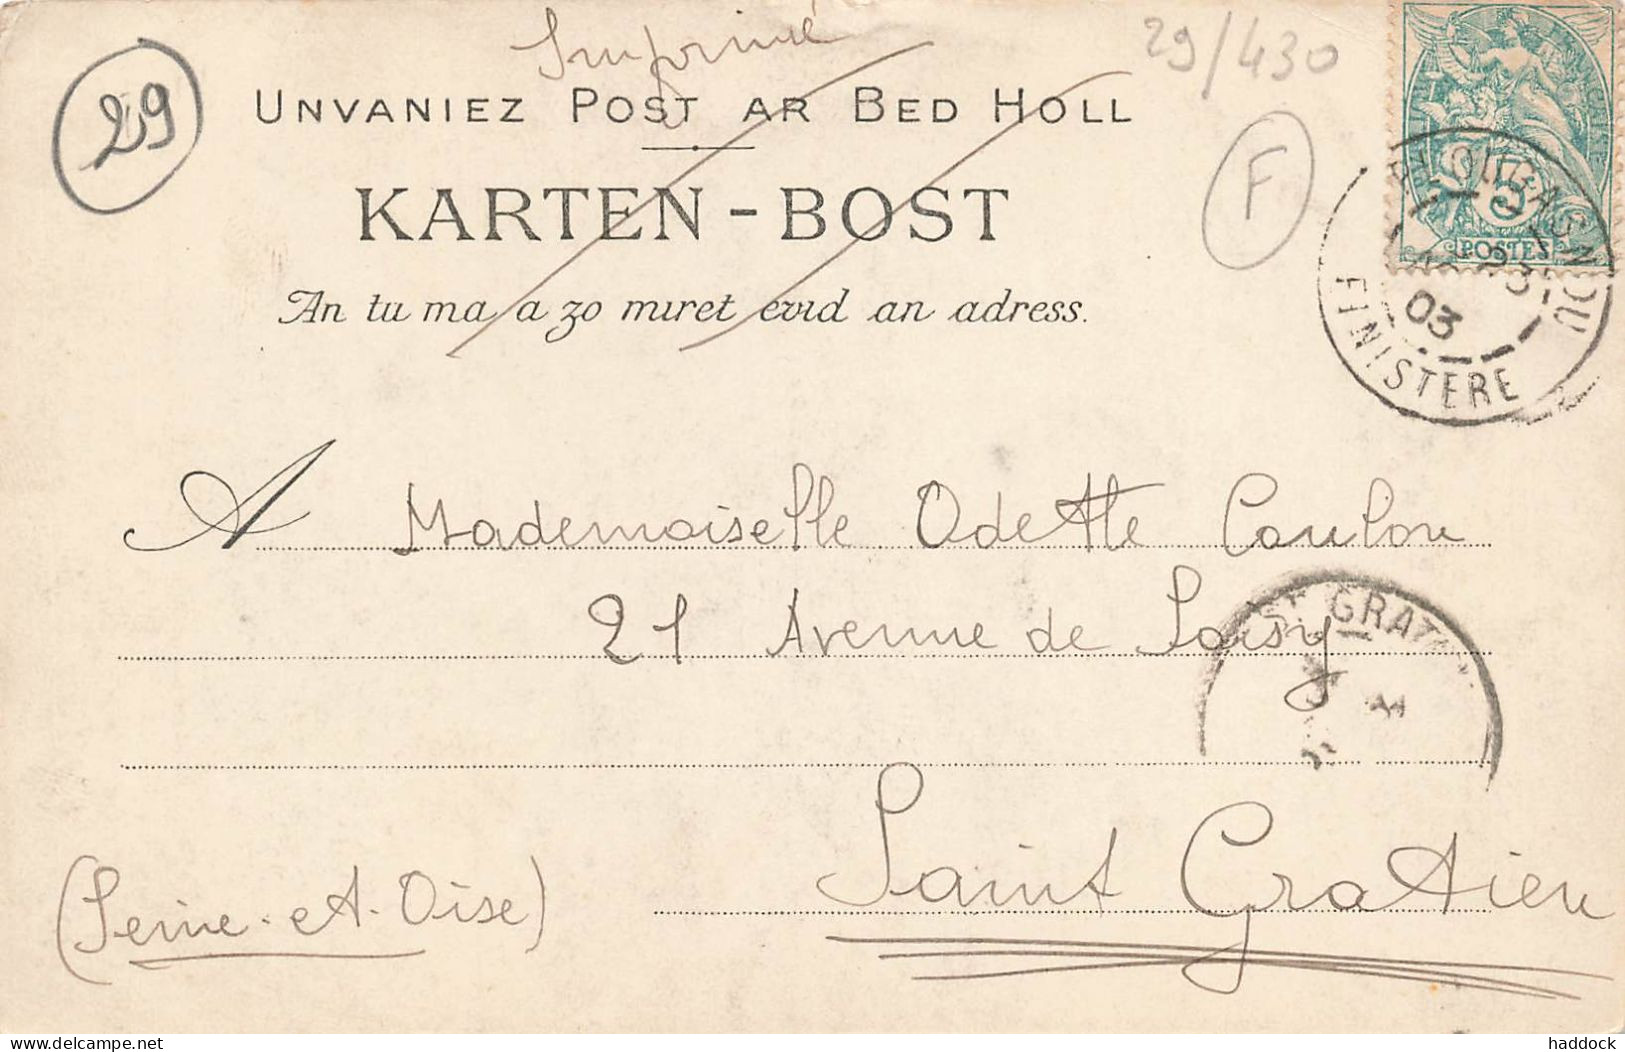 Imprimé
29/430
29
UNVANIEZ POST AR BED HOLL
F
KARTEN-BOST
An tu ma a zo miret evid an adress.
5
POSTES
03
FINISTERE
A Mademoiselle Odette Coulon
21 Avenue de Soisy
ST GRATI
Saint Gratien
(Seine-et-Oise)
delcampe.net
haddock